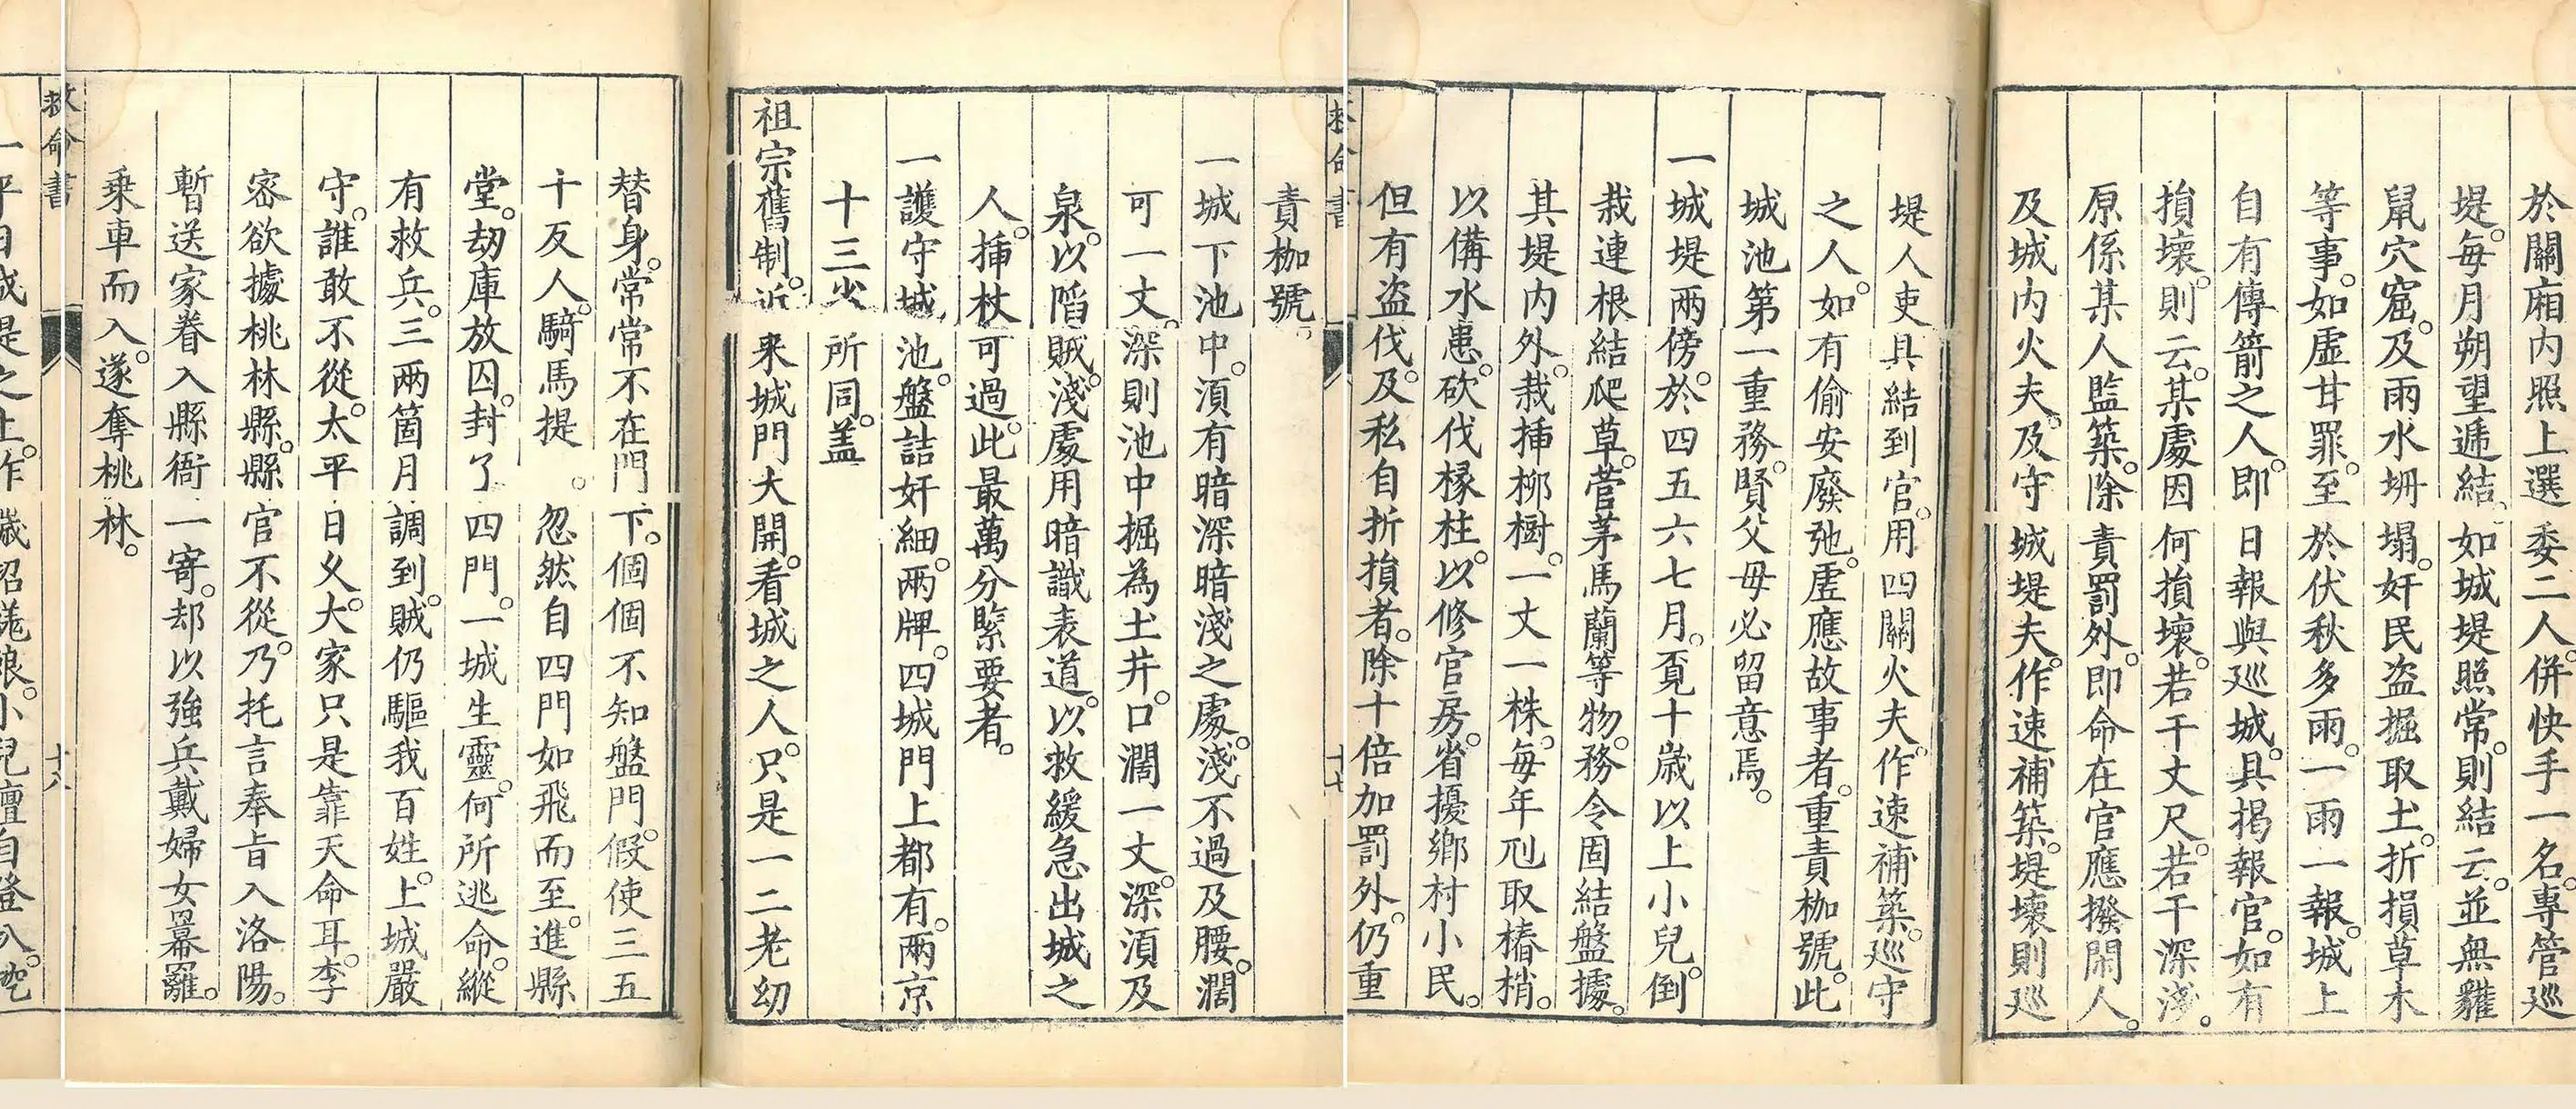 於關廂内照上選委二人併快手一名。專管廵
堤。每月朔望遞結。如城堤照常。則結云。並無貛
鼠穴窟。及雨水坍塌。奸民盗掘取土。折損草木
等事。如虛甘罪。至於伏秋多雨。一雨一報。城上
自有傳箭之人。即日報與廵城。具揭報官。如有
損壞。則云。某處因何損壞。若干丈尺。若干深淺。
原係某人監築。除責罰外。即命在官應撥閑人。
及城内火夫。及守城堤夫。作速補築。堤壞則廵
堤人吏具結到官。用四關火夫。作速補築。廵守
之人。如有偷安廢弛。虛應故事者。重責枷號。此
城池第一重務。賢父母必留意焉。
一城堤兩傍。於四五六七月。覔十歲以上小兒。倒
栽連根結爬草。菅茅馬蘭等物。務令固結盤據。
其堤内外。栽挿柳樹。一丈一株。每年刓取樁梢。
以備水患。砍伐椽柱。以修官房。省擾鄉村小民。
但有盗伐。及私自折損者。除十倍加罰外。仍重
救命書
十七
責枷號。
一城下池中。湏有暗深暗淺之處。淺不過及腰。濶
可一丈。深則池中掘為土井。口濶一丈。深湏及
泉。以陷賊。淺處用暗識表道。以救緩急出城之
人。挿杖可過。此最萬分緊要者。
一護守城池。盤詰奸細。兩牌。四城門上都有。兩京
十三省所同。盖
祖宗舊制。近来城門大開。看城之人。只是一二老幼
替身。常常不在門下。個個不知盤門。假使三五
十反人。騎馬提。忽然自四門如飛而至。進縣
堂。刼庫放囚。封了四門。一城生靈。何所逃命。縱
有救兵。三兩箇月調到。賊仍驅我百姓。上城嚴
守。誰敢不從。太平日乆。大家只是靠天命耳。李
密欲據桃林縣。縣官不從。乃托言奉旨入洛陽。
暫送家眷入縣衙一寄。却以強兵戴婦女冪䍦。
乗車而入。遂奪桃林。
救命書
十八